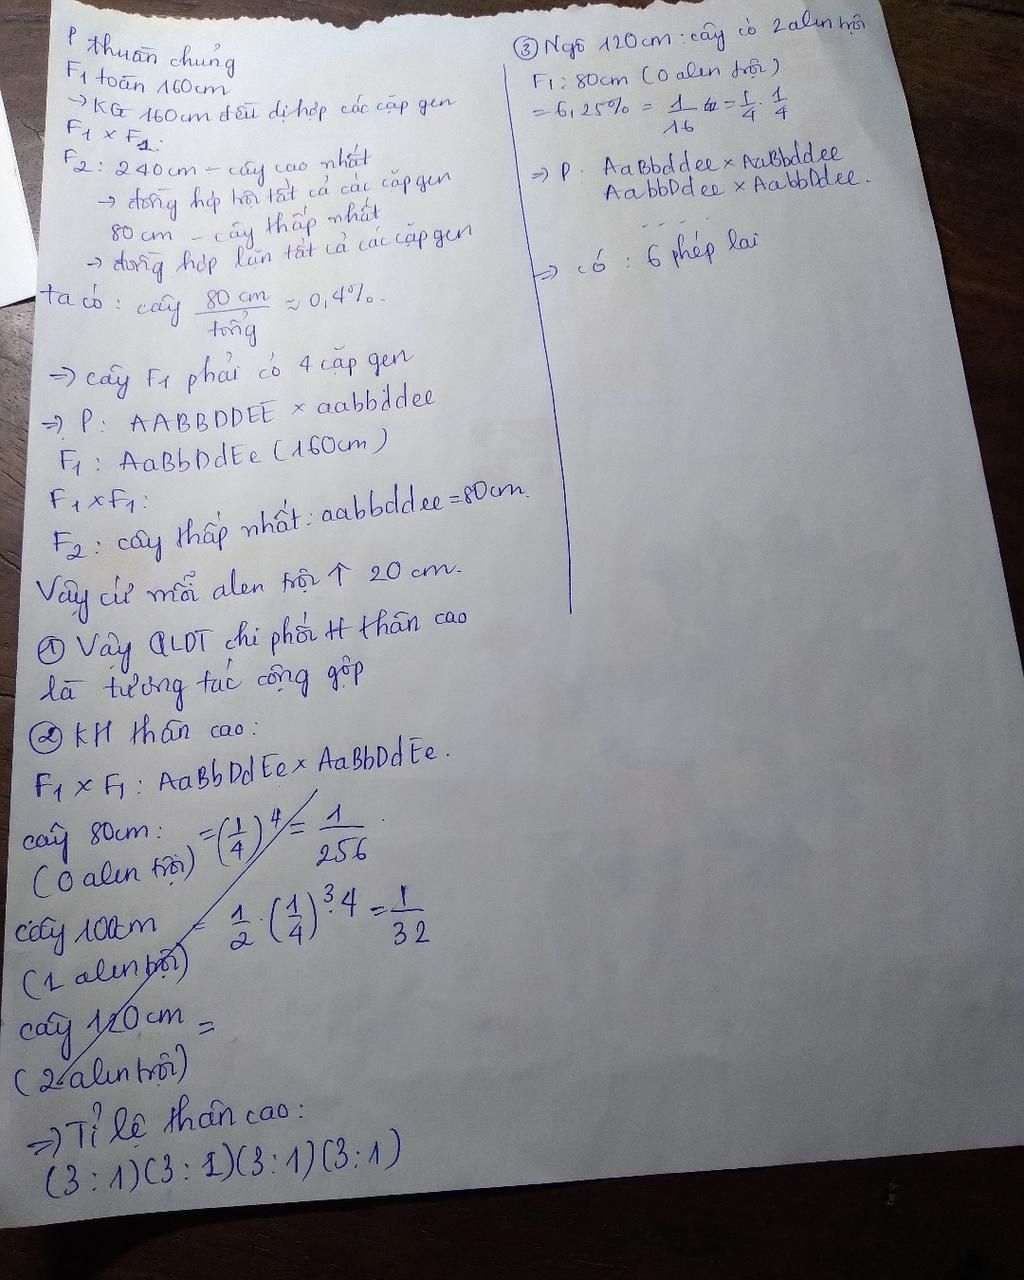 P thuần chủng
F1 toàn 160cm
→ KG 160cm đều dị hợp các cặp gen
F1 x F1:
F2: 240cm - cây cao nhất
→ đồng hợp trội tất cả các cặp gen
80 cm - cây thấp nhất
→ đồng hợp lặn tất cả các cặp gen
ta có: cây 80 cm / tổng ≈ 0,4%.
=> cây F1 phải có 4 cặp gen
=> P: AABBDDEE x aabbddee
F1: AaBbDdEe (160cm)
F1 x F1:
F2: cây thấp nhất: aabbddee = 80cm.
Vậy cứ mỗi alen trội ↑ 20 cm.
① Vậy QLDT chi phối tt thân cao
là tương tác cộng gộp
② KH thân cao:
F1 x F1: AaBbDdEe x AaBbDdEe.
cây 80cm: = (1/4)^4 = 1/256
(0 alen trội)
cây 100cm = 1/2 . (1/4)^3 . 4 = 1/32
(1 alen trội)
cây 120cm =
(2 alen trội)
=> Tỉ lệ thân cao:
(3:1)(3:1)(3:1)(3:1)
③ Ngô 120cm: cây có 2 alen trội
F1: 80cm (0 alen trội)
= 6,25% = 1/16 = 1/4 . 1/4
=> P: AaBbddee x AaBbddee
AabbDdee x AabbDdee.
.....
=> có: 6 phép lai